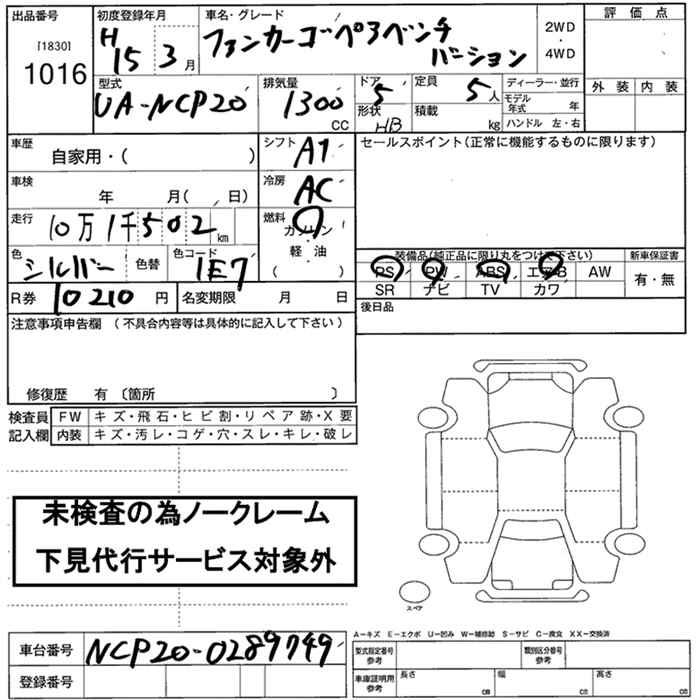 出品番号 初度登録年月 車名・グレード 評価点
[1830] H15 3月 ファンカーゴペアベンチ 2WD
1016 バージョン ・4WD
型式 排気量 ドア 定員 ディーラー・並行 外装 内装
UA-NCP20 1300 CC 5 5人 モデル年式 年
形状 HB 積載 kg ハンドル 左・右
車歴 シフト AT セールスポイント(正常に機能するものに限ります)
自家用・( )
車検 冷房 AC
年 月( 日)
走行 10万1千502km 燃料 ガソリン
・軽・油
( )
色 シルバー 色替 色コード 1E7
装備品(純正品に限り丸をつけ下さい) 新車保証書
PS PW ABS エアB AW 有・無
SR ナビ TV カワ
R券 10210円 名変期限 月 日 後日品
注意事項申告欄 (不具合内容等は具体的に記入して下さい)
修復歴 有 〔箇所 〕
検査員 FW キズ・飛石・ヒビ割・リペア跡・X要
記入欄 内装 キズ・汚レ・コゲ・穴・スレ・キレ・破レ
未検査の為ノークレーム
下見代行サービス対象外
スペア
A-キズ E-エクボ U-凹み W-補修跡 S-サビ C-腐食 XX-交換済
車台番号 NCP20-0289749
登録番号
型式指定番号 参考 類別区分番号 参考
車庫証明用 参考 長さ cm 幅 cm 高さ cm